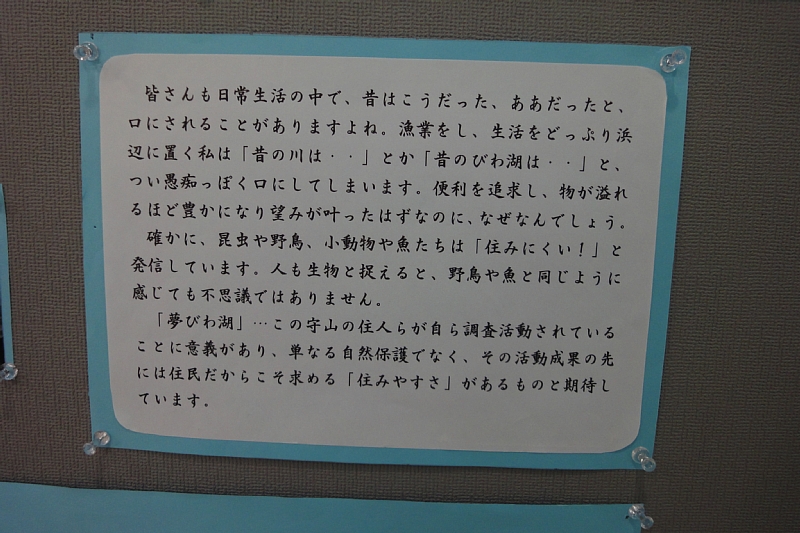 皆さんも日常生活の中で、昔はこうだった、ああだったと、
口にされることがありますよね。漁業をし、生活をどっぷり浜
辺に置く私は「昔の川は・・」とか「昔のびわ湖は・・」と、
つい愚痴っぽく口にしてしまいます。便利を追求し、物が溢れ
るほど豊かになり望みが叶ったはずなのに、なぜなんでしょう。
確かに、昆虫や野鳥、小動物や魚たちは「住みにくい！」と
発信しています。人も生物と捉えると、野鳥や魚と同じように
感じても不思議ではありません。
「夢びわ湖」…この守山の住人らが自ら調査活動されている
ことに意義があり、単なる自然保護でなく、その活動成果の先
には住民だからこそ求める「住みやすさ」があるものと期待し
ています。